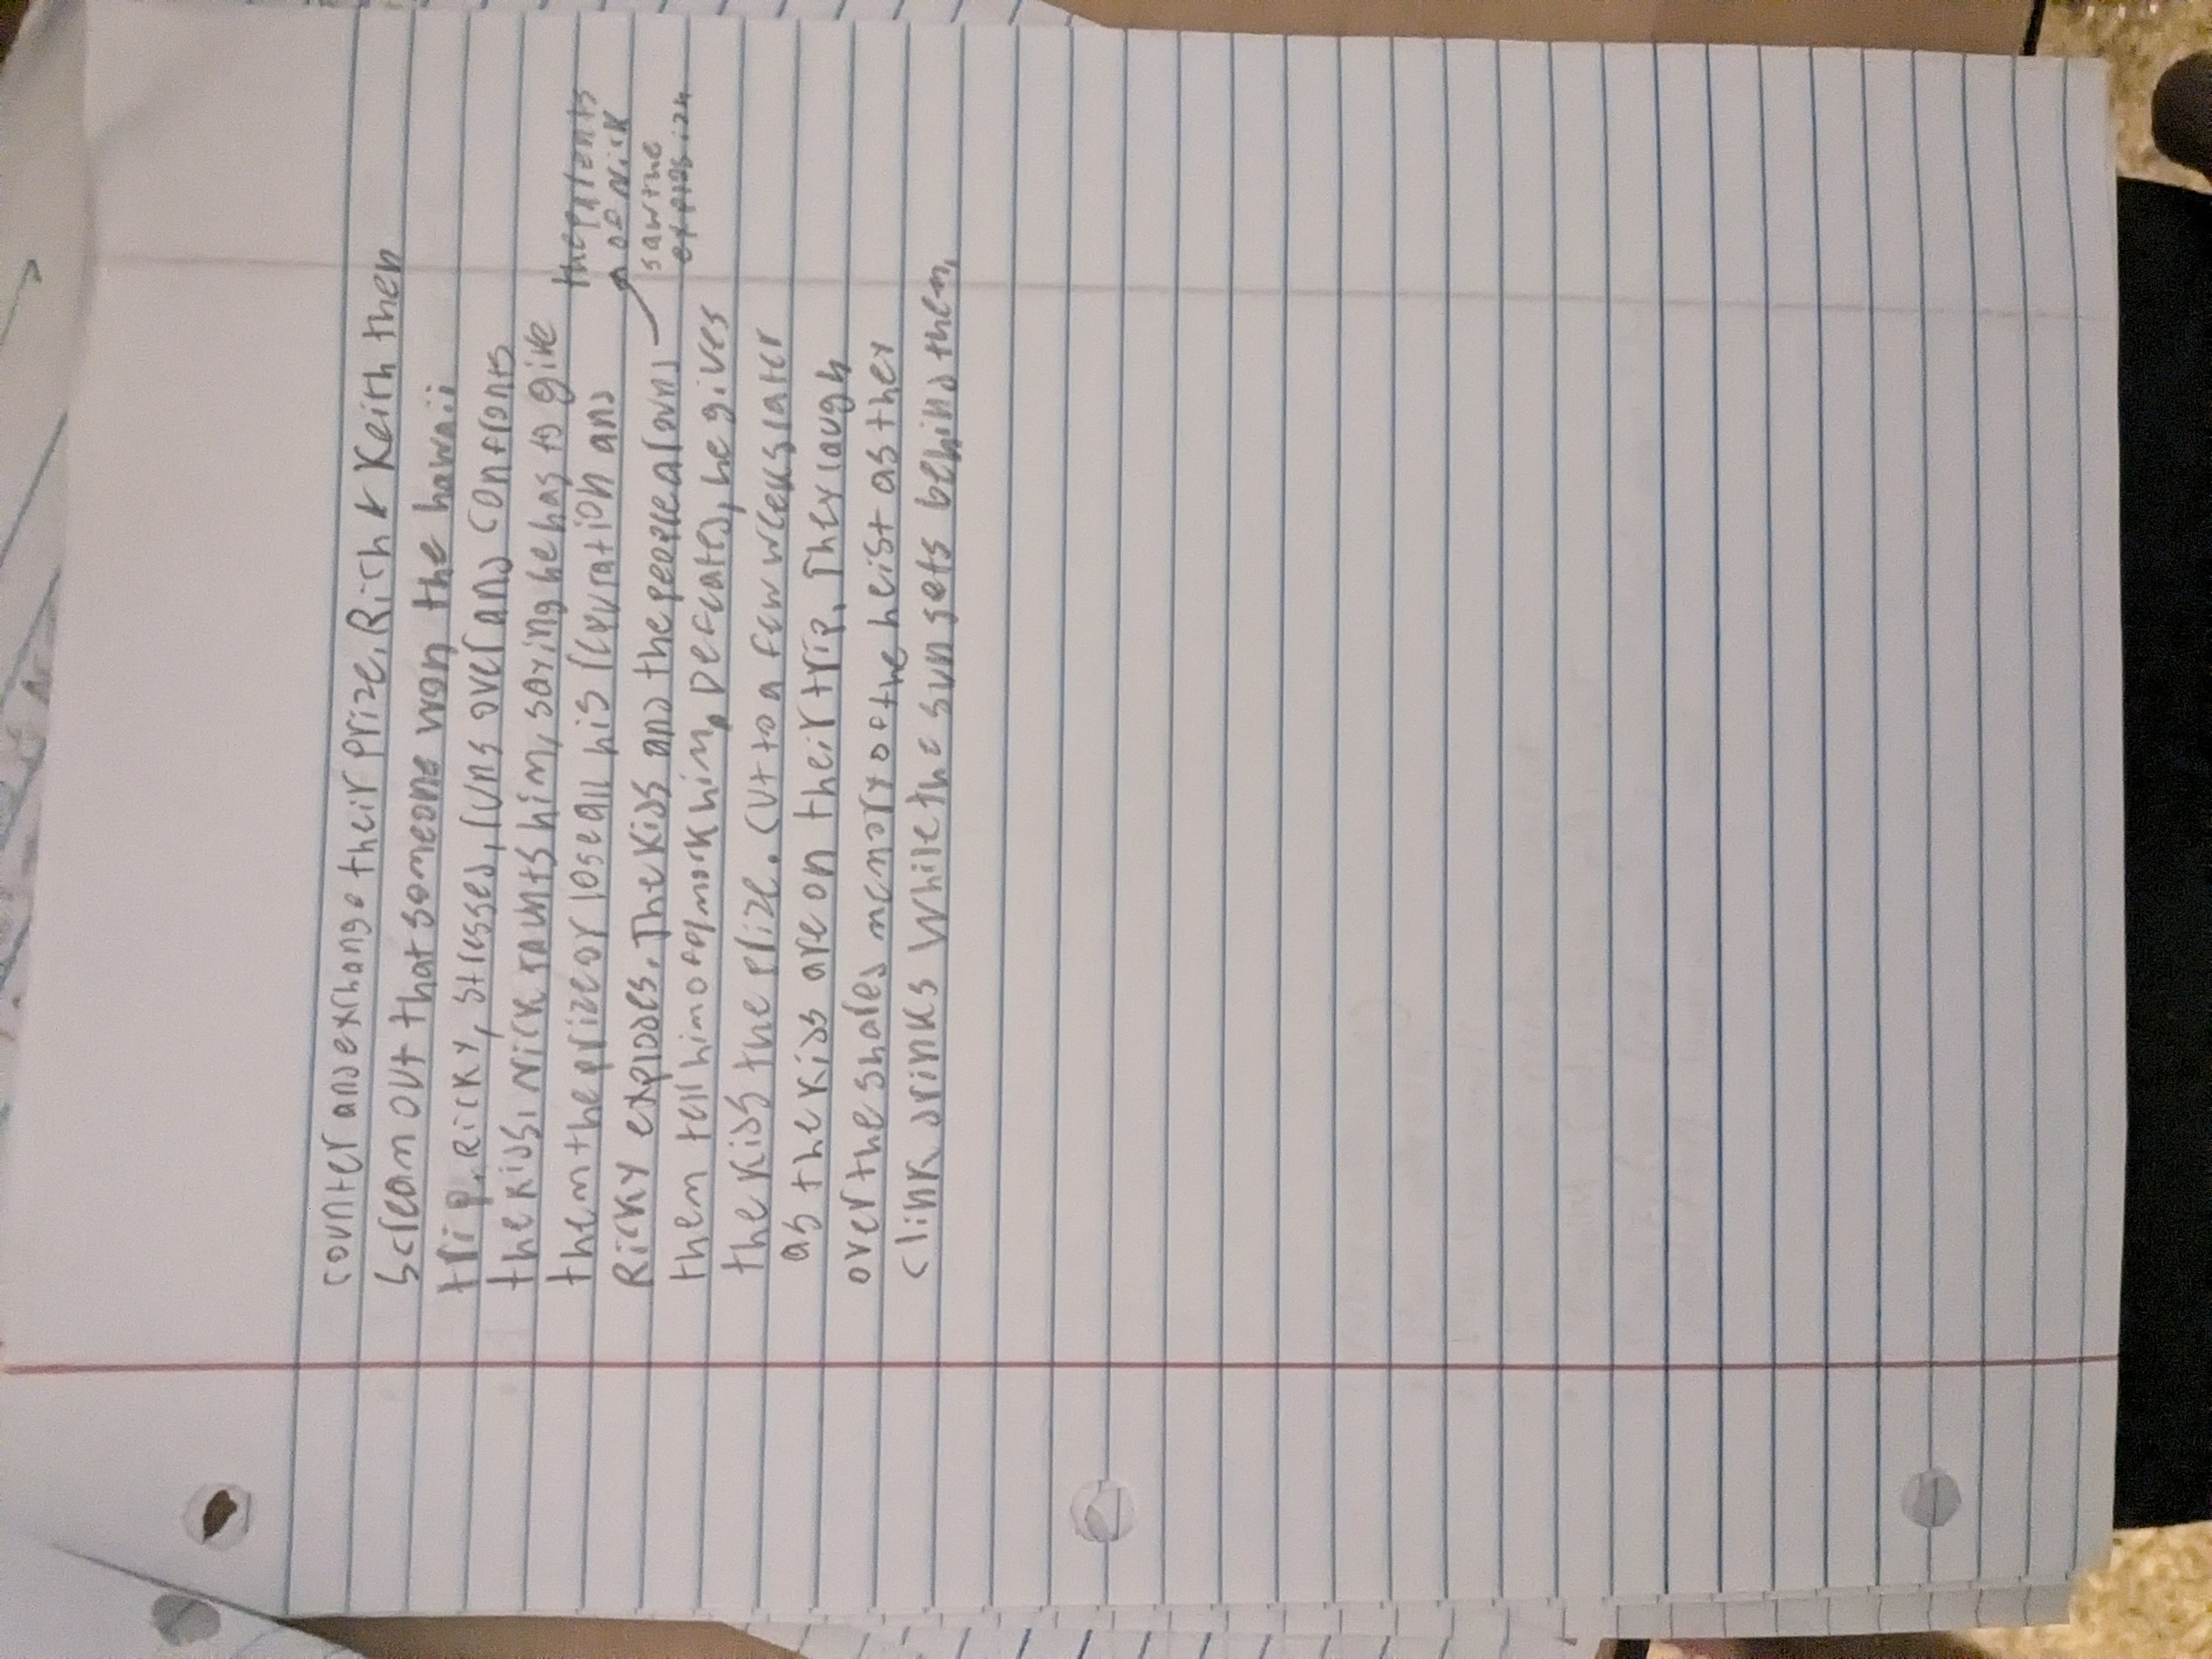 counter and exchange their prize. Rich & Keith then
scream out that someone won the hawaii
trip. Ricky, stressed, runs over and confronts
the kids. Nick taunts him, saying he has to give
them the prize or lose all his reputation and
Ricky explodes. The kids and the people around
the parents
of Nick
saw the
explosion
them tell him off, mock him. Defeated, he gives
the kids the prize. Cut to a few weeks later
as the kids are on their trip. They laugh
over the shared memory of the heist as they
clink drinks while the sun sets behind them.